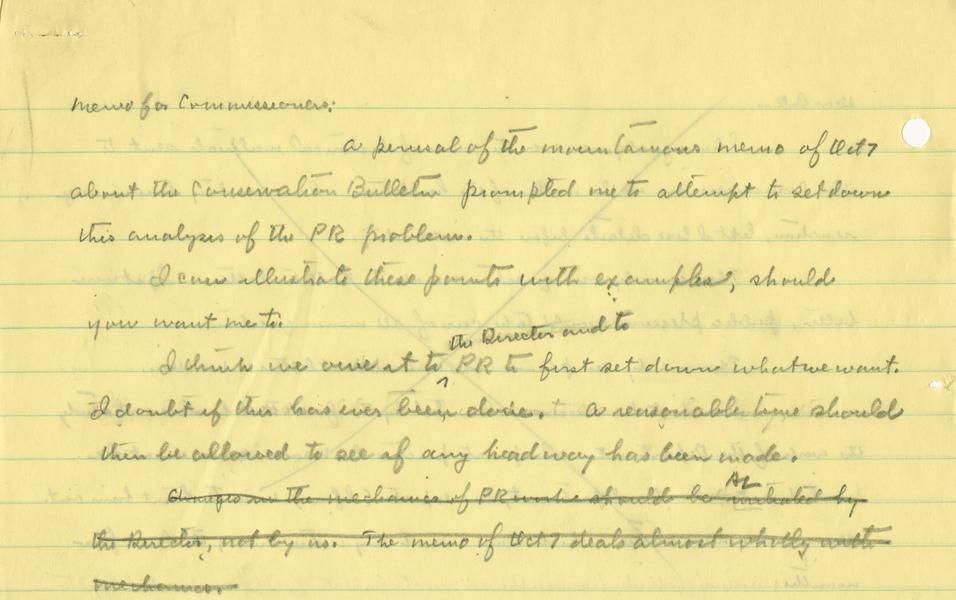 Memo for Commissioners:
A perusal of the mountainous memo of Oct 7
about the Conservation Bulletin prompted me to attempt to set down
this analysis of the PR problem.
I can illustrate these points with examples, should
you want me to.
the Director and to
I think we owe it to ^ PR to first set down what we want.
I doubt if this has ever been done. A reasonable time should
then be allowed to see if any headway has been made.
AL
Changes in the mechanics of PR work should be initiated by
the Director, not by us. The memo of Oct 7 deals almost wholly with
mechanics.